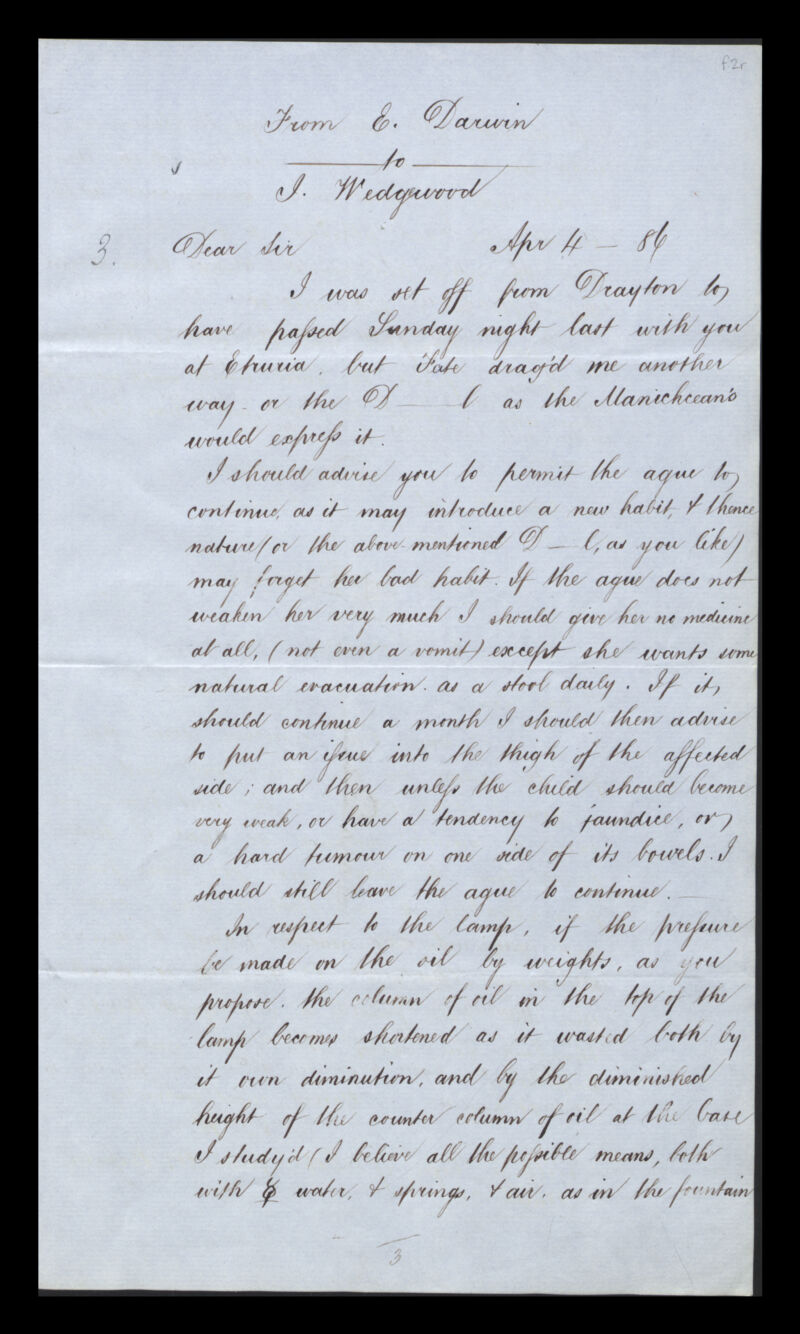 f.2r
From E. Darwin
to
J. Wedgwood
3.
Dear Sir Apr 4 – 86
I was set off from Drayton to
have passed Sunday night last with you
at Etruria. but Fate drag'd me another
way. or the D——l as the Manichœan's
would express it.
I should advise you to permit the ague to
continue, as it may introduce a new habit, & thence
nature (or the above-mentioned D—l, as you like)
may forget her bad habit. If the ague does not
weaken her very much I should give her no medicine
at all, (not even a vomit) except she wants some
natural evacuation. as a stool daily. If it
should continue a month I should then advise
to put an issue into the thigh of the affected
side; and then unless the child should become
very weak, or have a tendency to jaundice, or
a hard tumour on one side of its bowels. I
should still leave the ague to continue.—
In respect to the lamp, if the pressure
be made on the oil by weights, as you
propose. the column of oil in the top of the
lamp becomes shortened as it wasted both by
it own diminution, and by the diminished
height of the counter column of oil at the base
I study'd (I believe all the possible means, both
with ☿ water, & springs, & air. as in the fountain
3